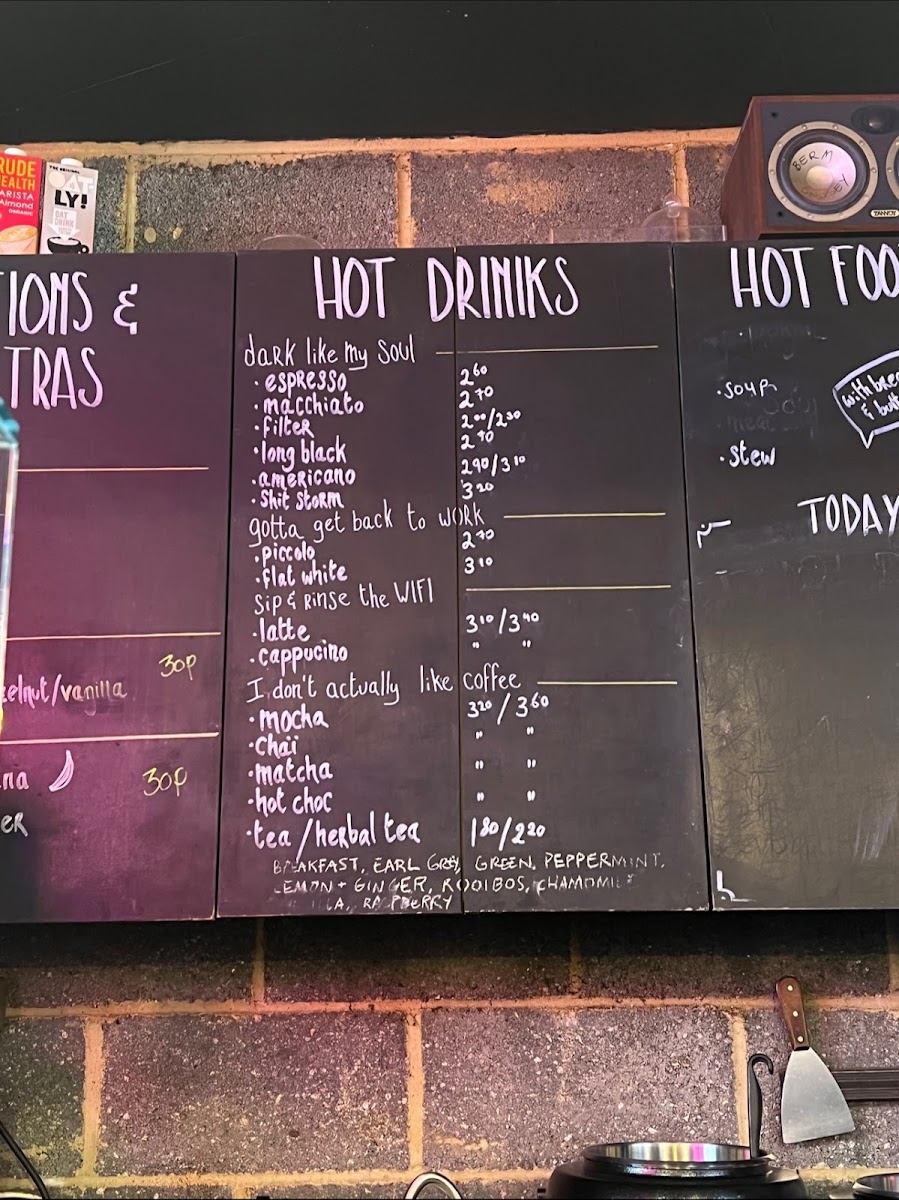 RUDE
HEALTH
BARISTA
Almond
ORGANIC
THE ORIGINAL
OATLY!
OAT
DRINK
BERM
EY
TANNOY
TIONS &
TRAS
30p
zelnut/vanilla
30p
HOT DRINKS
dark like my soul
• espresso 2 60
• macchiato 2 70
• filter
• long black
• americano 2 90 / 3 10
• shit storm 3 20
gotta get back to work
• piccolo 2 70
• flat white 3 10
sip & rinse the WIFI
• latte 3 10 / 3 40
• cappucino " "
I don't actually like coffee
• mocha 3 20 / 3 60
• chai " "
• matcha " "
• hot choc " "
• tea / herbal tea 1 80 / 2 20
BREAKFAST, EARL GREY, GREEN, PEPPERMINT,
LEMON + GINGER, ROOIBOS, CHAMOMILE
RASPBERRY
HOT FOO
• soup
with brea
& butt
• stew
TODAY